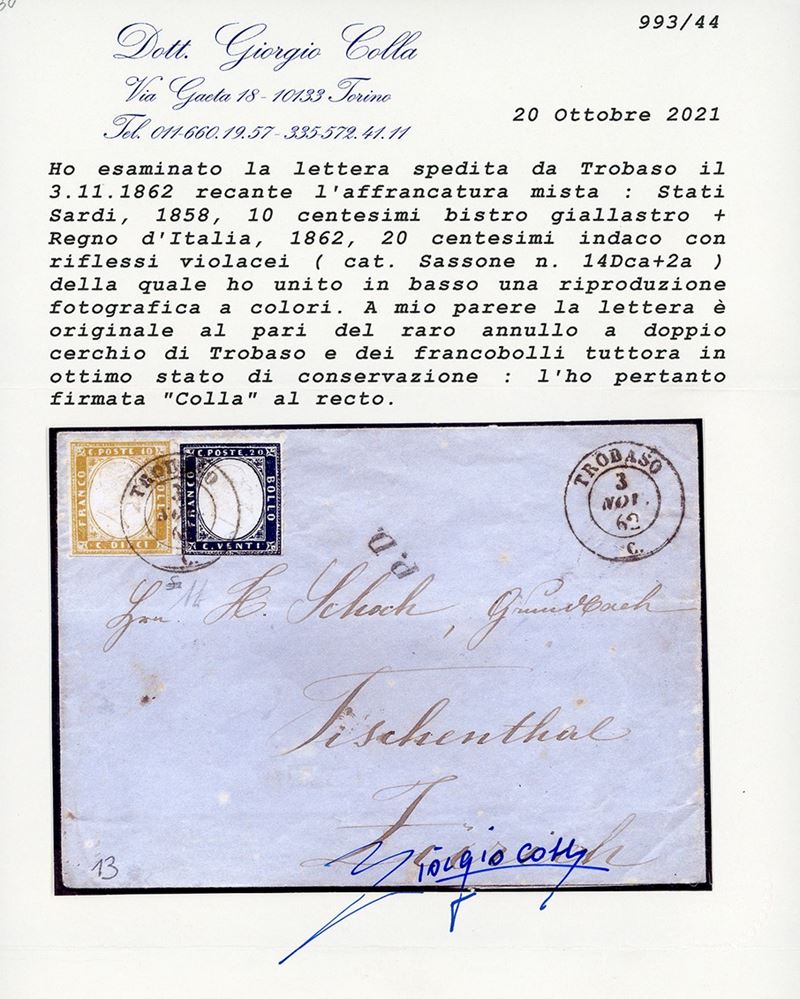 993/44
Dott. Giorgio Colla
Via Gaeta 18 - 10133 Torino
Tel. 011-660.19.57 - 335-572.41.11
20 Ottobre 2021
Ho esaminato la lettera spedita da Trobaso il
3.11.1862 recante l'affrancatura mista : Stati
Sardi, 1858, 10 centesimi bistro giallastro +
Regno d'Italia, 1862, 20 centesimi indaco con
riflessi violacei ( cat. Sassone n. 14Dca+2a )
della quale ho unito in basso una riproduzione
fotografica a colori. A mio parere la lettera è
originale al pari del raro annullo a doppio
cerchio di Trobaso e dei francobolli tuttora in
ottimo stato di conservazione : l'ho pertanto
firmata "Colla" al recto.
C. POSTE 10
FRANCO
BOLLO
C. DIECI
C. POSTE. 20
FRANCO
BOLLO
C. VENTI
TROBASO
TROBASO
3
NOV.
62
C.
P.D.
Hrn. H. Schoch, Grundbach
Fischenthal
Zürich
13
Giorgio Colla